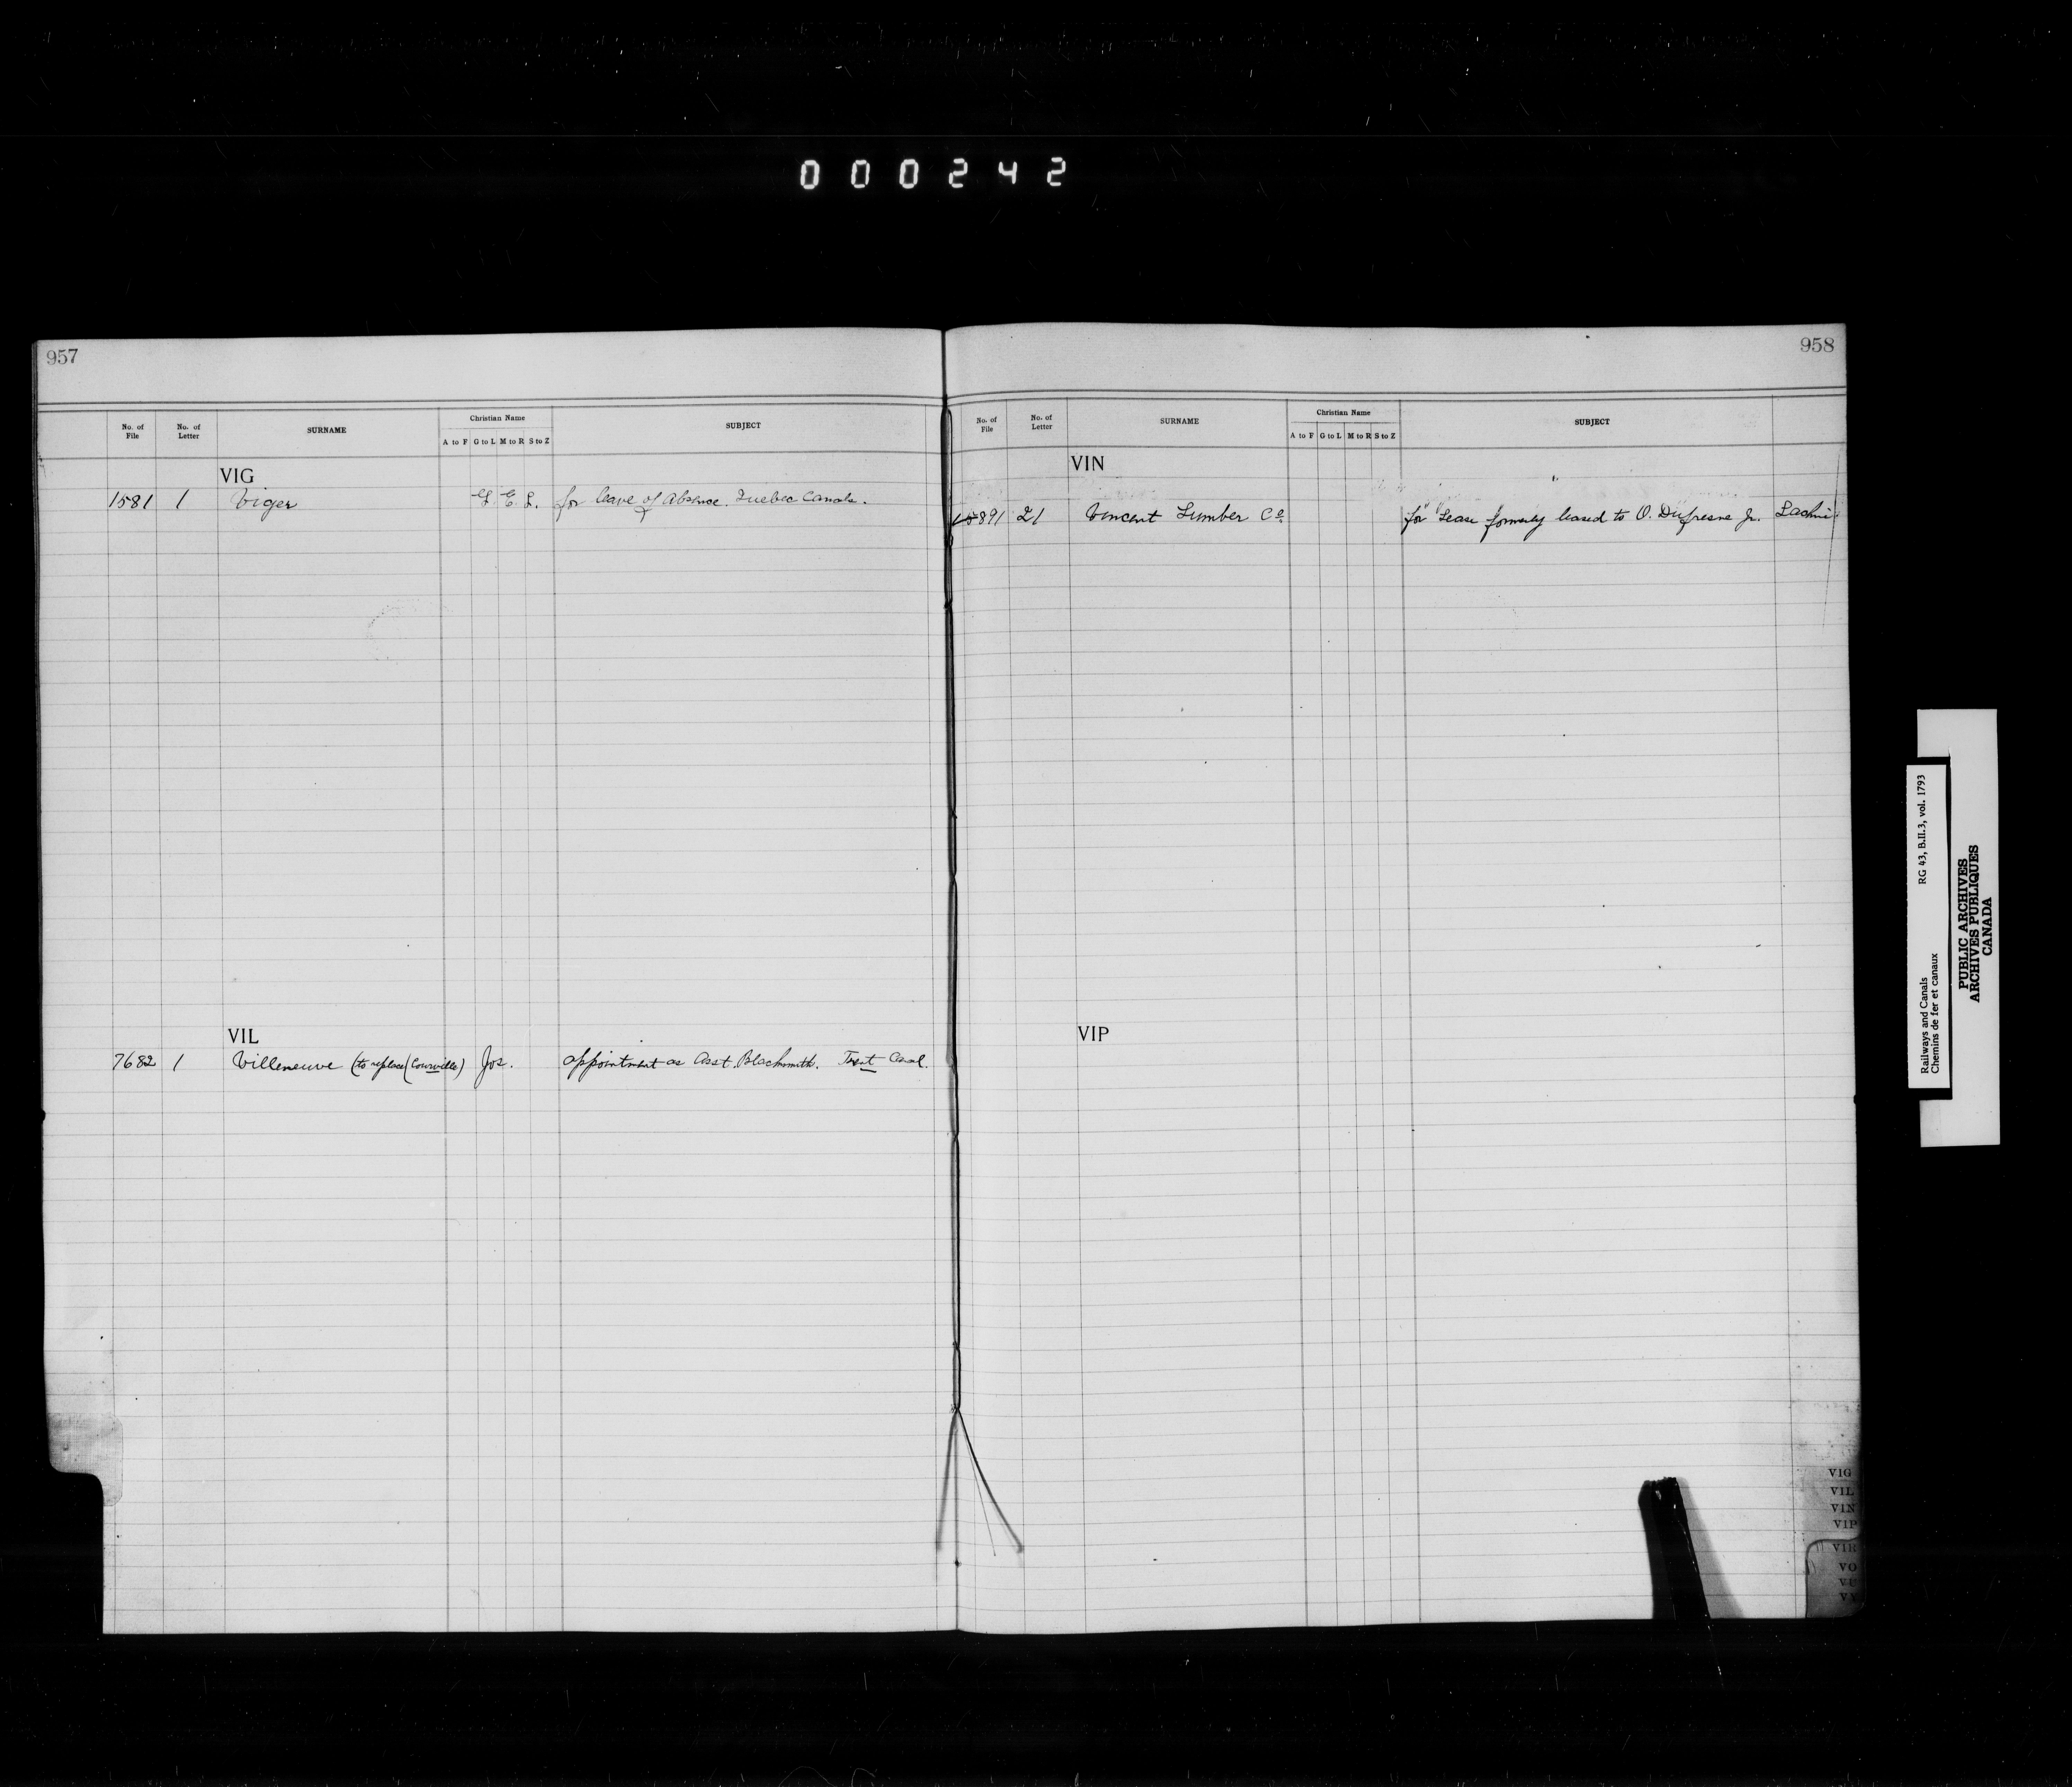 000242
957
No. of File
No. of Letter
SURNAME
Christian Name
A to F G to L M to R S to Z
SUBJECT
VIG
1581 1 Viger G. E. L. for leave of Absence. Quebec Canals.
VIL
7682 1 Villeneuve (to replace (Courville) Jos. appointment as Asst. Blacksmith. Trent Canal.
958
No. of File
No. of Letter
SURNAME
Christian Name
A to F G to L M to R S to Z
SUBJECT
VIN
891 21 Vincent Lumber Co. for Lease formerly leased to O. Dufresne Jr.
VIP
VIG
VIL
VIN
VIP
VIR
VO
VU
VY
Railways and Canals RG 43, B.II.3, vol. 1793
Chemins de fer et canaux
PUBLIC ARCHIVES
ARCHIVES PUBLIQUES
CANADA